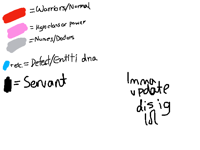 = Warriors/Normal
= Hyperclass or power
= Nurses/Doctors
rec. = Defect/Entiti dna
= Servant
Imma
update
dis ig
lol